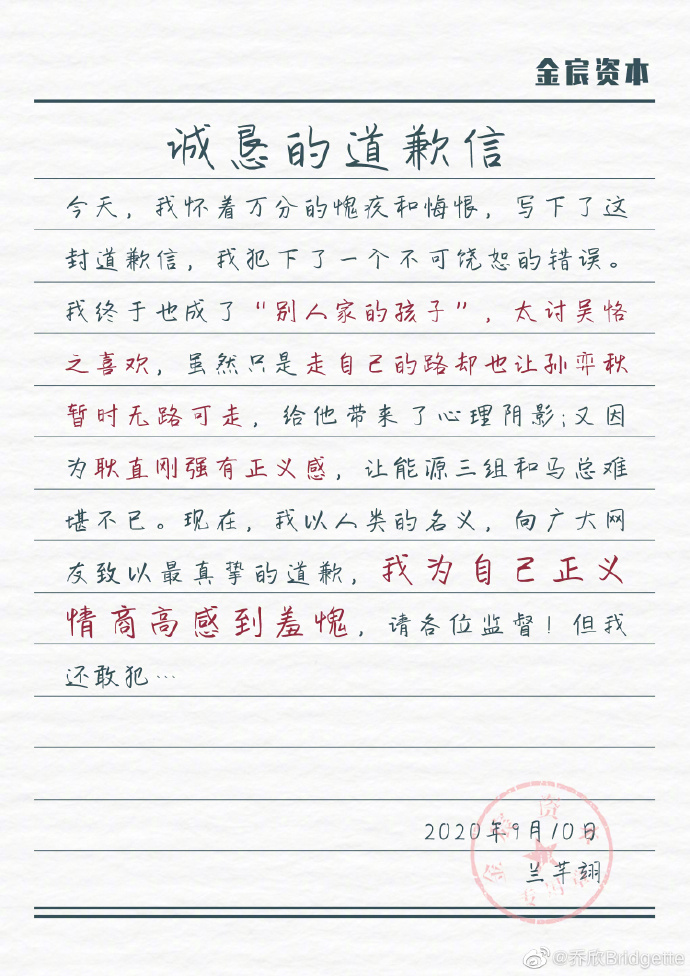 金宸资本
诚恳的道歉信
今天，我怀着万分的愧疚和悔恨，写下了这
封道歉信，我犯下了一个不可饶恕的错误。
我终于也成了“别人家的孩子”，太讨吴恪
之喜欢，虽然只是走自己的路却也让孙弈秋
暂时无路可走，给他带来了心理阴影；又因
为耿直刚强有正义感，让能源三组和马总难
堪不已。现在，我以人类的名义，向广大网
友致以最真挚的道歉，我为自己正义
情商高感到羞愧，请各位监督！但我
还敢犯…
2020年9月10日
兰芊翊
@乔欣Bridgette